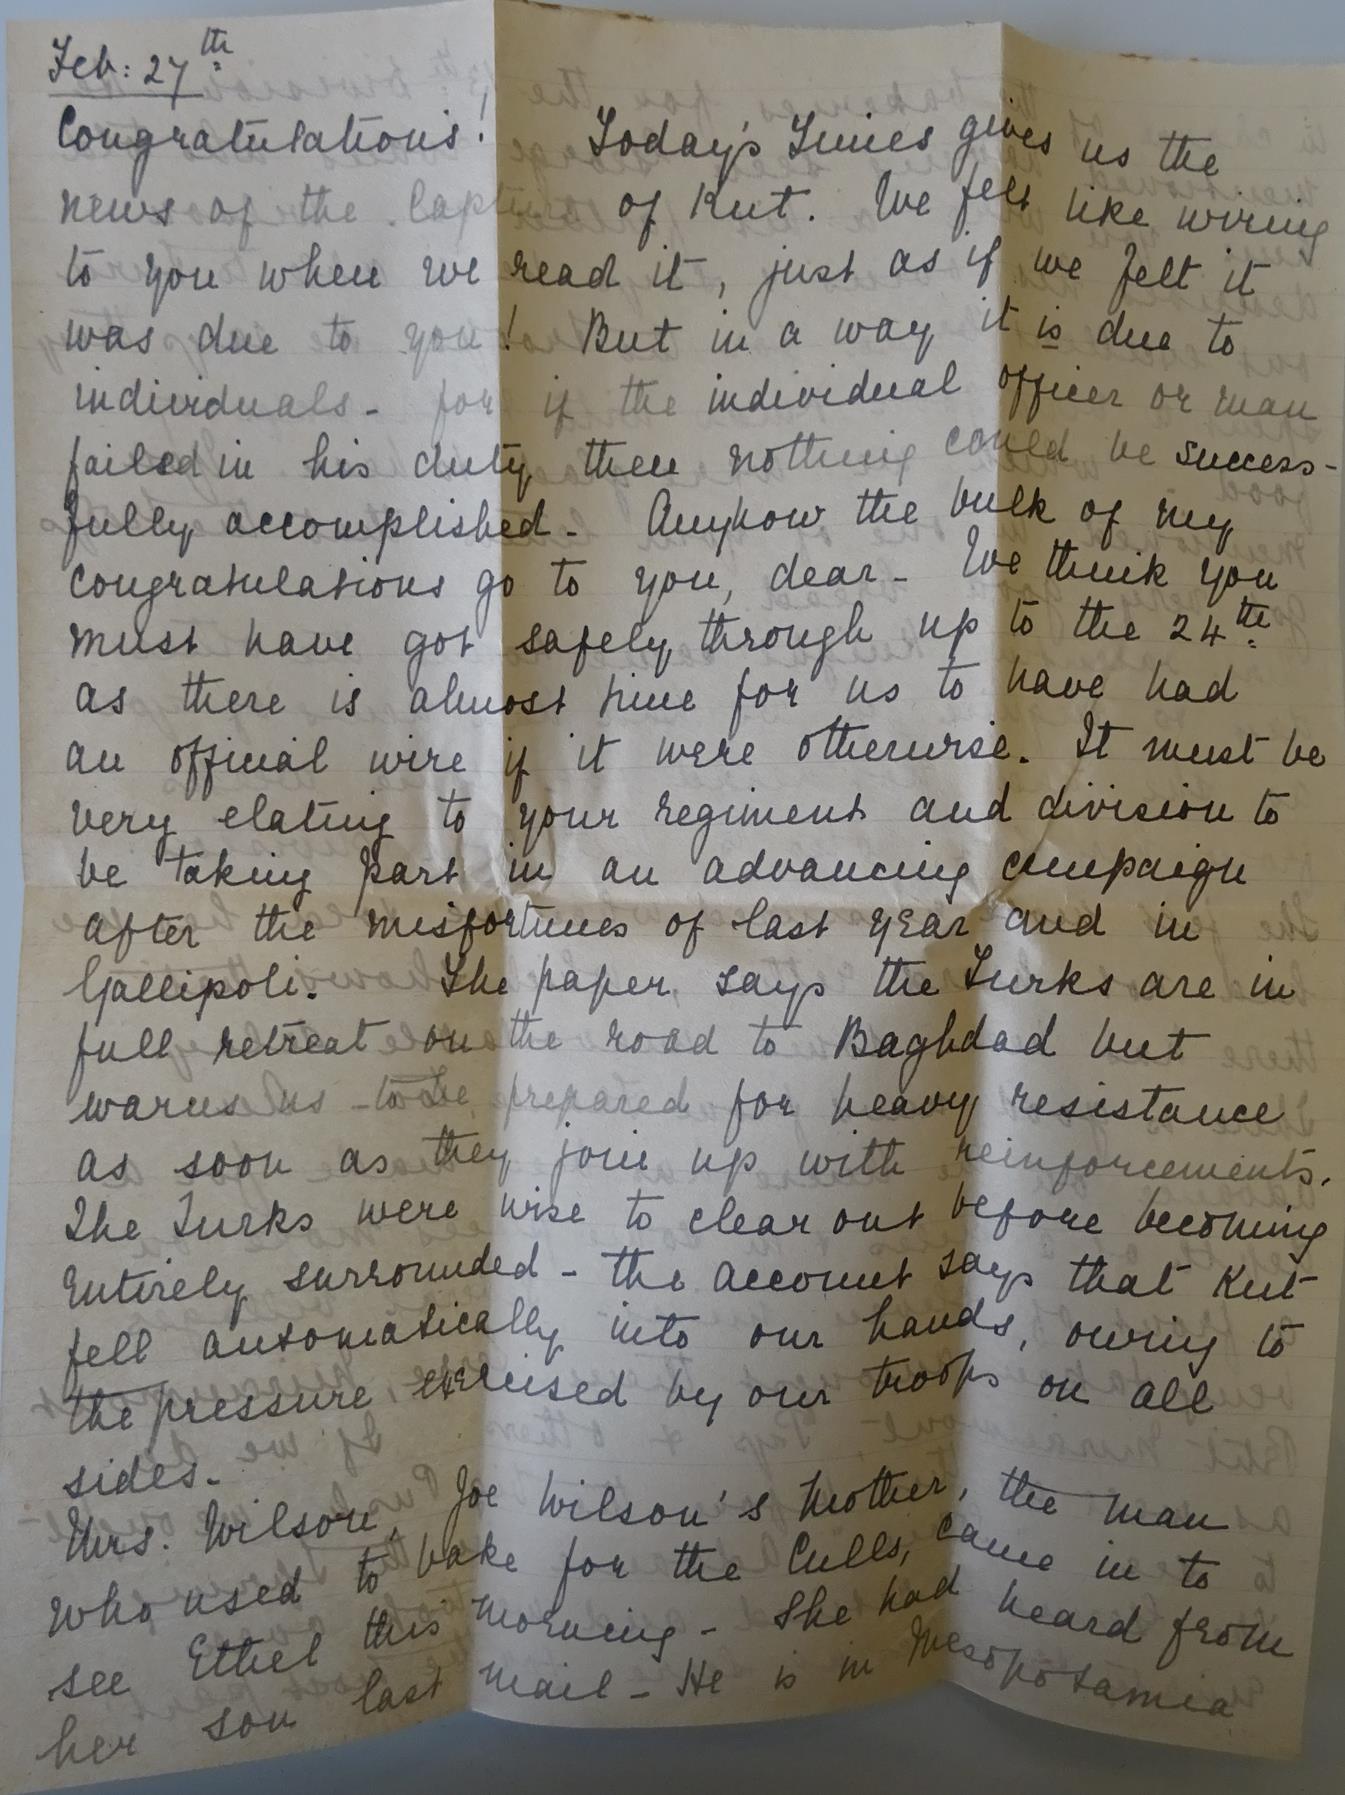 Feb: 27th
Congratulations! Today's Times gives us the
news of the Capture of Kut. We felt like wiring
to you when we read it, just as if we felt it
was due to you! But in a way it is due to
individuals - for if the individual officer or man
failed in his duty then nothing could be success-
fully accomplished - Anyhow the bulk of my
congratulations go to you, dear - We think you
must have got safely through up to the 24th
as there is almost time for us to have had
an official wire if it were otherwise. It must be
very elating to your regiment and division to
be taking part in an advancing campaign
after the misfortunes of last year and in
Gallipoli. The paper says the Turks are in
full retreat on the road to Baghdad but
warns us to be prepared for heavy resistance
as soon as they join up with reinforcements.
The Turks were wise to clear out before becoming
entirely surrounded - the account says that Kut
fell automatically into our hands, owing to
the pressure exercised by our troops on all
sides -
Mrs. Wilson, Joe Wilson's mother, the man
who used to bake for the Culls, came in to
see Ethel this morning - She had heard from
her son last mail - He is in Mesopotamia